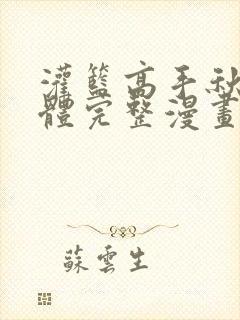 灌籃高手秋
體完整漫畫
蘇雲生